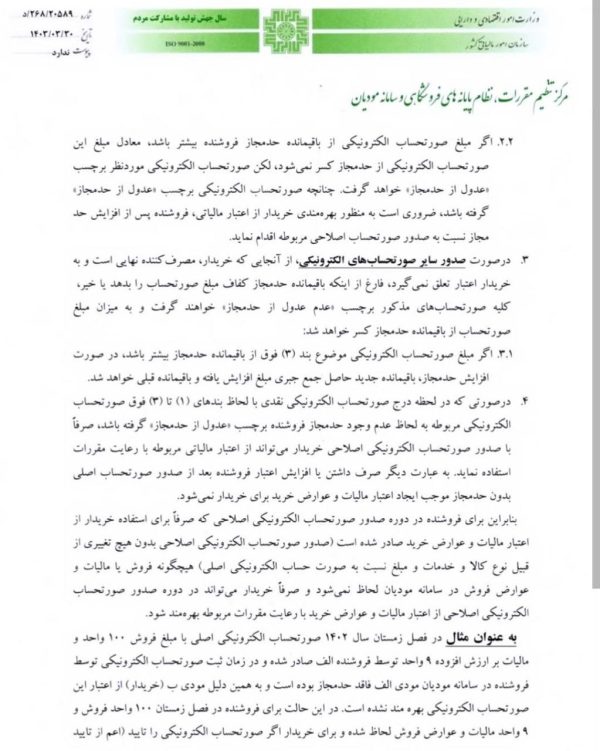 وزارت امور اقتصادی و دارایی
سازمان امور مالیاتی کشور
سال جهش تولید با مشارکت مردم
ISO 9001-2008
شماره: ۲۶۸/۲۰۵۸۹/د
تاریخ: ۱۴۰۳/۰۳/۳۰
پیوست: ندارد
مرکز تنظیم مقررات، نظام پایانه های فروشگاهی و سامانه مودیان
۲.۲. اگر مبلغ صورتحساب الکترونیکی از باقیمانده حدمجاز فروشنده بیشتر باشد، معادل مبلغ این
صورتحساب الکترونیکی از حدمجاز کسر نمی‌شود، لکن صورتحساب الکترونیکی موردنظر برچسب
«عدول از حدمجاز» خواهد گرفت. چنانچه صورتحساب الکترونیکی برچسب «عدول از حدمجاز»
گرفته باشد، ضروری است به منظور بهره‌مندی خریدار از اعتبار مالیاتی، فروشنده پس از افزایش حد
مجاز نسبت به صدور صورتحساب اصلاحی مربوطه اقدام نماید.
۳. درصورت صدور سایر صورتحساب‌های الکترونیکی، از آنجایی که خریدار، مصرف‌کننده نهایی است و به
خریدار اعتبار تعلق نمی‌گیرد، فارغ از اینکه باقیمانده حدمجاز کفاف مبلغ صورتحساب را بدهد یا خیر،
کلیه صورتحساب‌های مذکور برچسب «عدم عدول از حدمجاز» خواهند گرفت و به میزان مبلغ
صورتحساب از باقیمانده حدمجاز کسر خواهد شد:
۳.۱. اگر مبلغ صورتحساب الکترونیکی موضوع بند (۳) فوق از باقیمانده حدمجاز بیشتر باشد، در صورت
افزایش حدمجاز، باقیمانده جدید حاصل جمع جبری مبلغ افزایش یافته و باقیمانده قبلی خواهد شد.
۴. درصورتی که در لحظه درج صورتحساب الکترونیکی نقدی با لحاظ بندهای (۱) تا (۳) فوق صورتحساب
الکترونیکی مربوطه به لحاظ عدم وجود حدمجاز فروشنده برچسب «عدول از حدمجاز» گرفته باشد، صرفاً
با صدور صورتحساب الکترونیکی اصلاحی خریدار می‌تواند از اعتبار مالیاتی مربوطه با رعایت مقررات
استفاده نماید. به عبارت دیگر صرف داشتن یا افزایش اعتبار فروشنده بعد از صدور صورتحساب اصلی
بدون حدمجاز موجب ایجاد اعتبار مالیات و عوارض خرید برای خریدار نمی‌شود.
بنابراین برای فروشنده در دوره صدور صورتحساب الکترونیکی اصلاحی که صرفاً برای استفاده خریدار از
اعتبار مالیات و عوارض خرید صادر شده است (صدور صورتحساب الکترونیکی اصلاحی بدون هیچ تغییری از
قبیل نوع کالا و خدمات و مبلغ نسبت به صورت حساب الکترونیکی اصلی) هیچگونه فروش یا مالیات و
عوارض فروش در سامانه مودیان لحاظ نمی‌شود و صرفاً خریدار می‌تواند در دوره صدور صورتحساب
الکترونیکی اصلاحی از اعتبار مالیات و عوارض خرید با رعایت مقررات مربوطه بهره‌مند شود.
به عنوان مثال در فصل زمستان سال ۱۴۰۲ صورتحساب الکترونیکی اصلی با مبلغ فروش ۱۰۰ واحد و
مالیات بر ارزش افزوده ۹ واحد توسط فروشنده الف صادر شده و در زمان ثبت صورتحساب الکترونیکی توسط
فروشنده در سامانه مودیان مودی الف فاقد حدمجاز بوده است و به همین دلیل مودی ب (خریدار) از اعتبار این
صورتحساب الکترونیکی بهره مند نشده است. در این حالت برای فروشنده در فصل زمستان ۱۰۰ واحد فروش و
۹ واحد مالیات و عوارض فروش لحاظ شده و برای خریدار اگر صورتحساب الکترونیکی را تایید (اعم از تایید